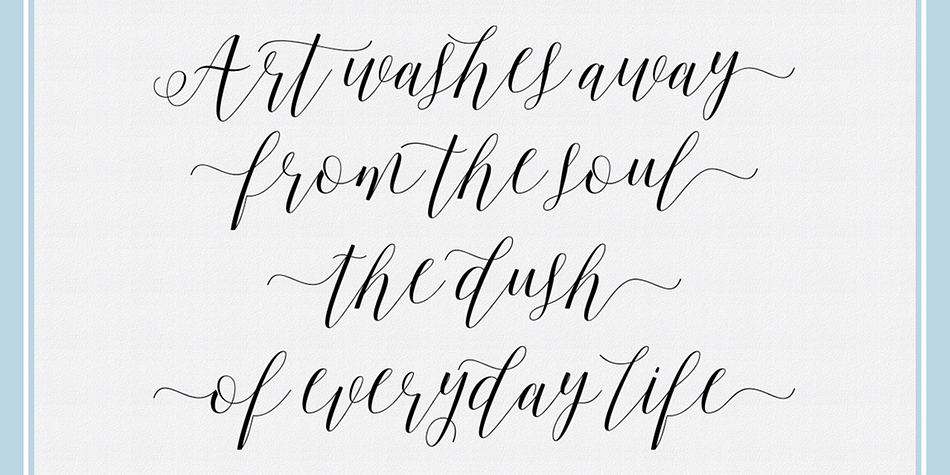 Art washes away
from the soul
the dush
of everyday life